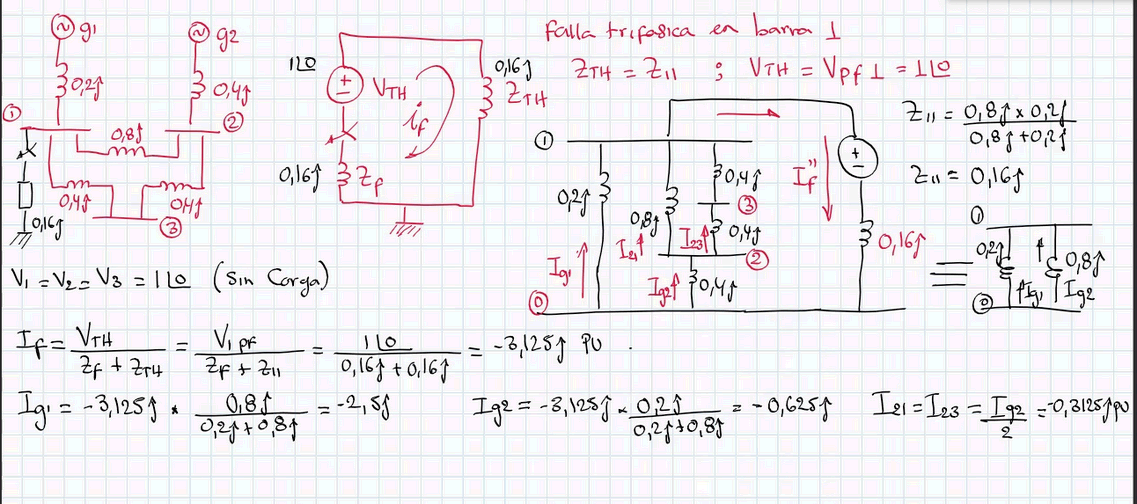 g1
g2
0,2j
0,4j
①
②
0,8j
0,4j
0,4j
③
0,16j
1∟0
V_TH
i_f
0,16j
Z_TH
0,16j
Z_f
Falla trifasica en barra 1
Z_TH = Z_11 ; V_TH = V_pf 1 = 1∟0
①
0,2j
0,8j
0,4j
③
0,4j
②
0,4j
I_g1
I_21
I_23
I_g2
⓪
I_f''
0,16j
Z_11 = (0,8j x 0,2j) / (0,8j + 0,2j)
Z_11 = 0,16j
①
0,2j
0,8j
I_g1
I_g2
⓪
V_1 = V_2 = V_3 = 1∟0 (Sin Carga)
I_f = V_TH / (Z_f + Z_TH) = V_1 pf / (Z_f + Z_11) = 1∟0 / (0,16j + 0,16j) = -3,125j PU .
I_g1 = -3,125j * 0,8j / (0,2j + 0,8j) = -2,5j
I_g2 = -3,125j * 0,2j / (0,2j + 0,8j) = -0,625j
I_21 = I_23 = I_g2 / 2 = -0,3125j PU